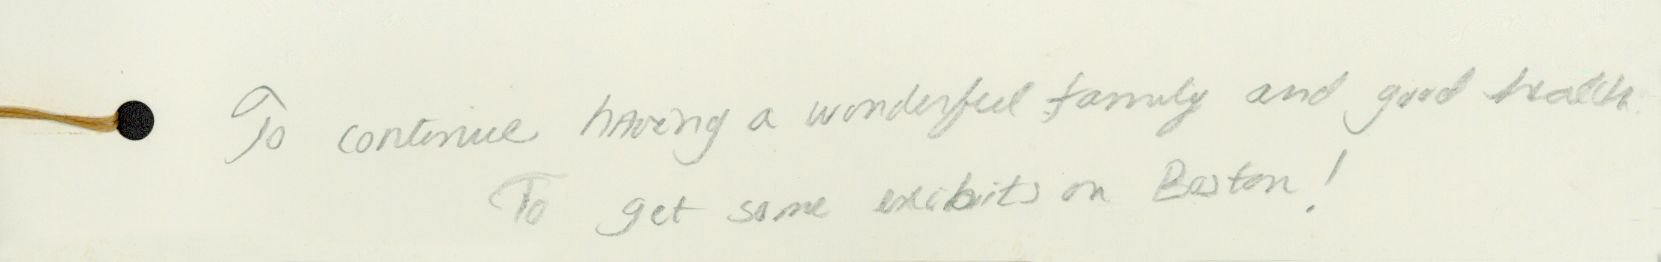 To continue having a wonderful family and good health.
To get some exibits on Boston!